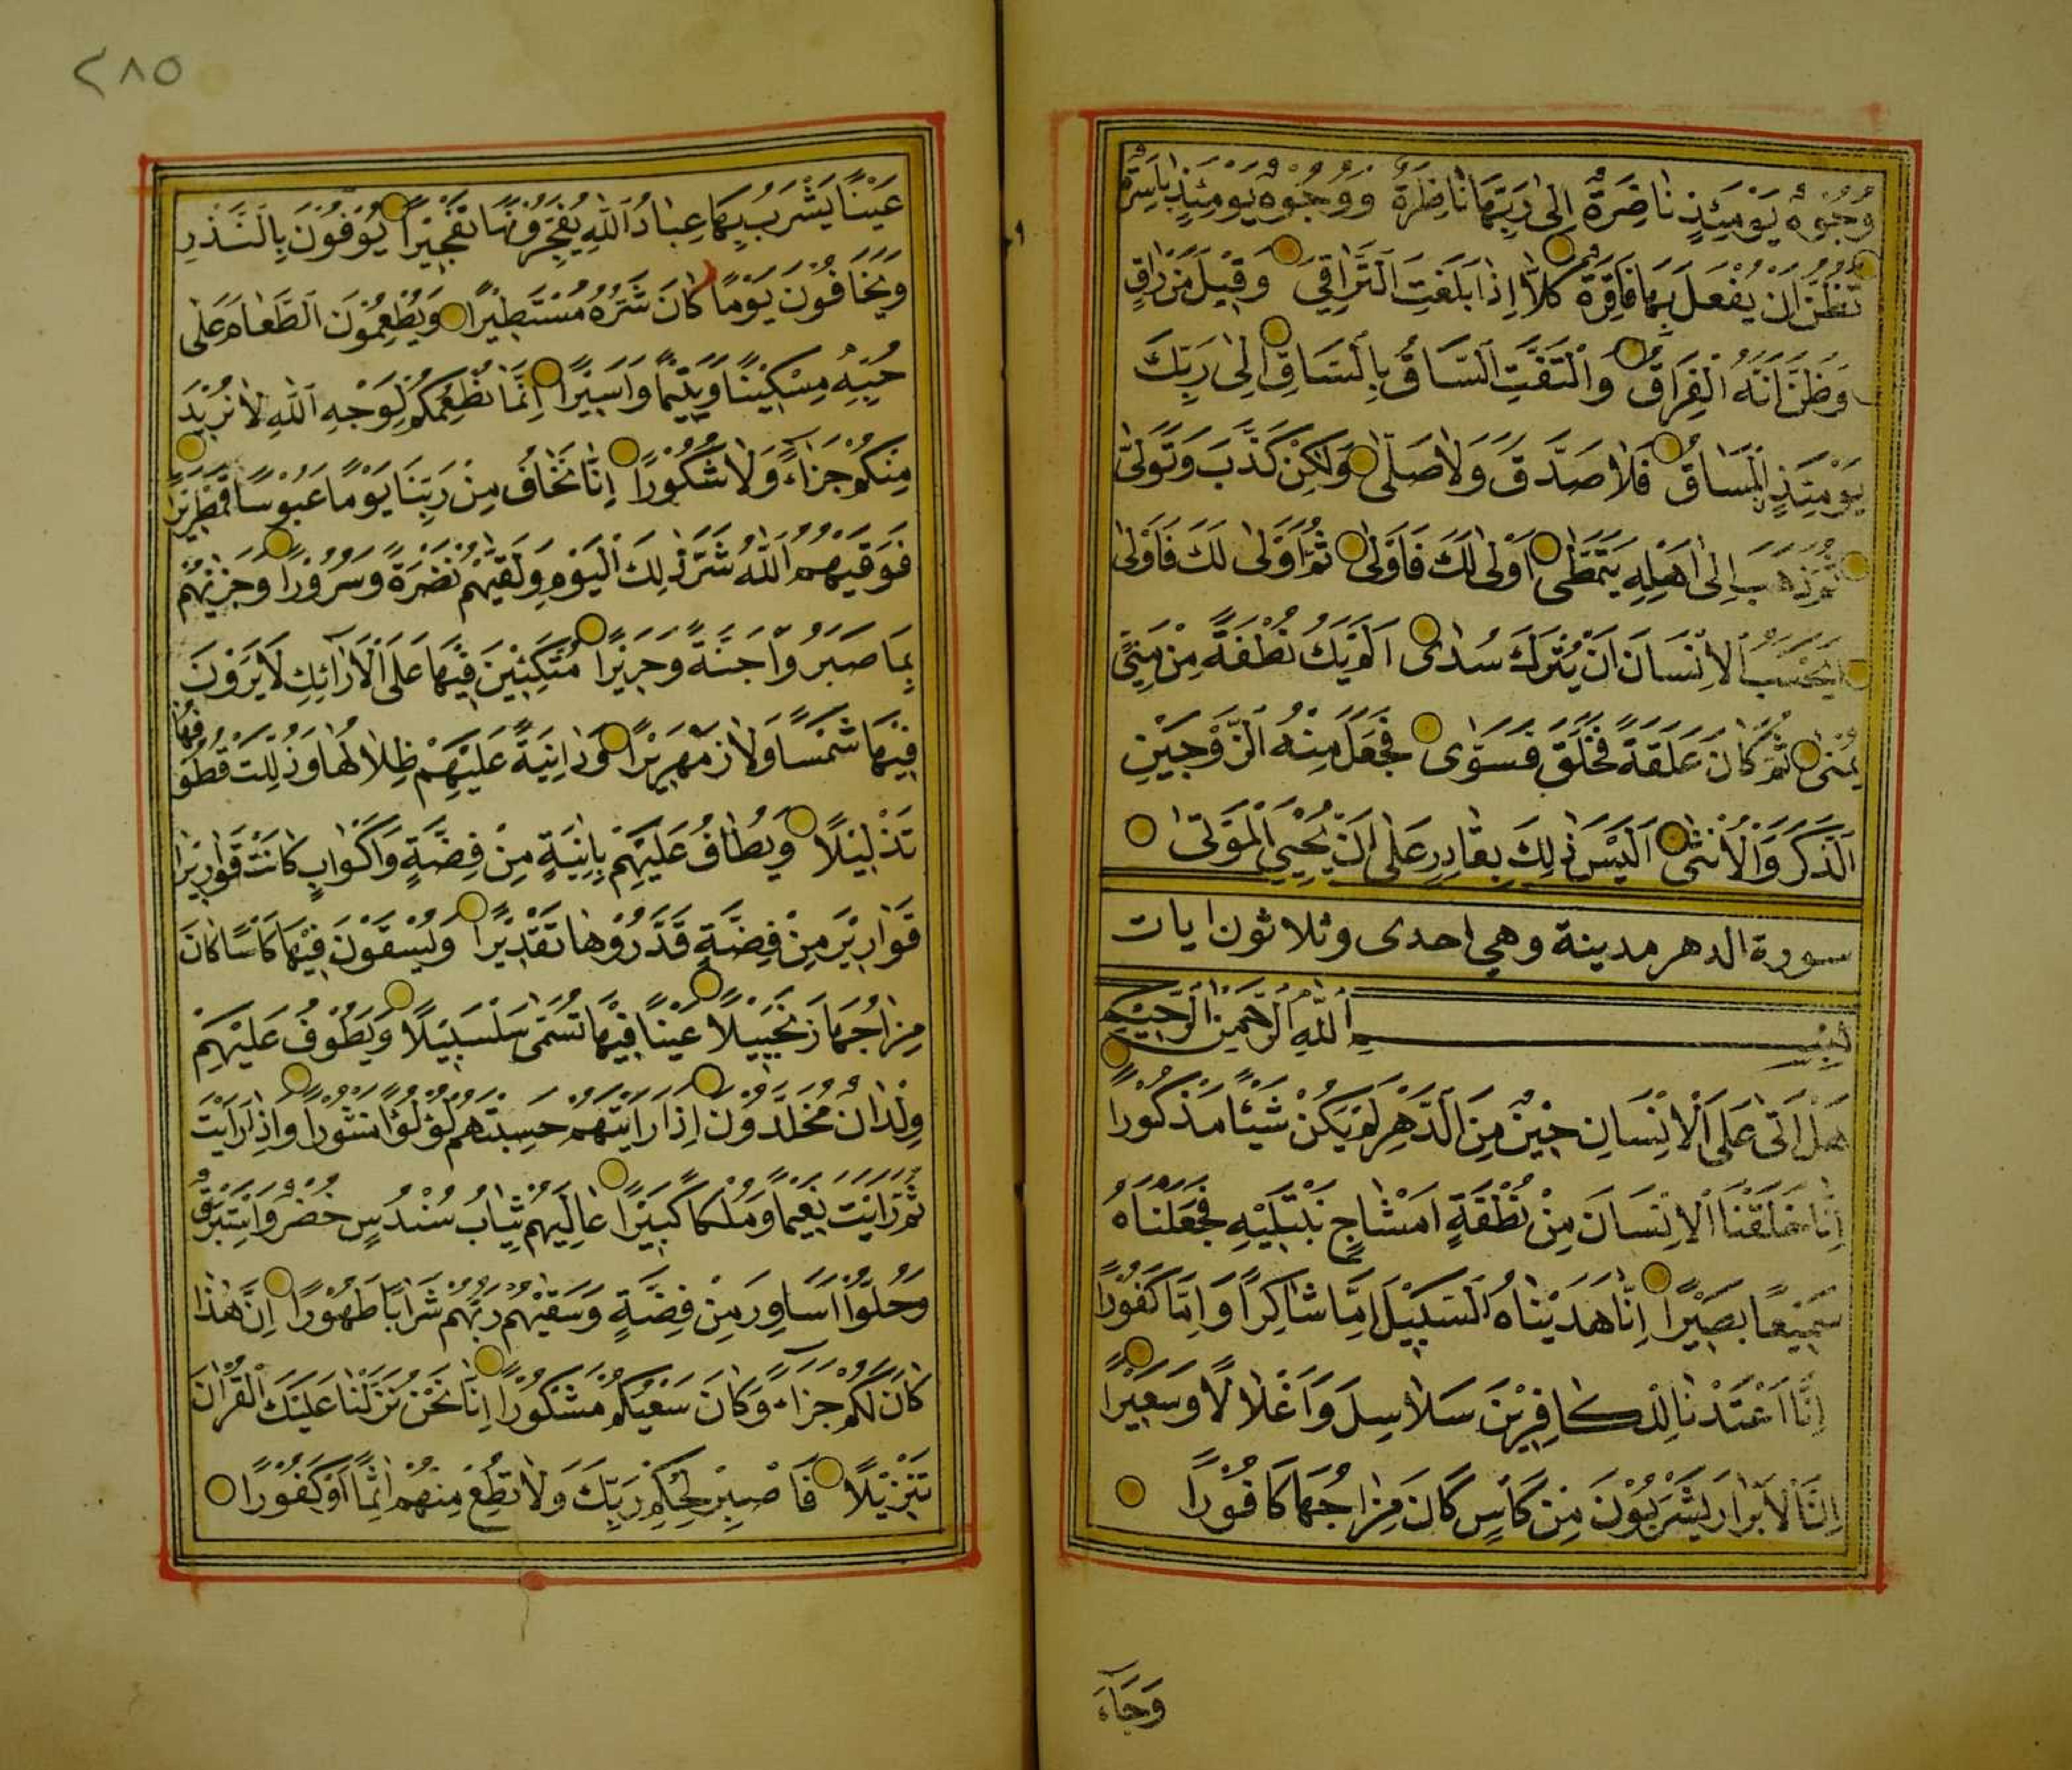 وُجُوهٌ يَوْمَئِذٍ نَاضِرَةٌ اِلٰى رَبِّهَا نَاظِرَةٌ وَوُجُوهٌ يَوْمَئِذٍ بَاسِرَةٌ
تَظُنُّ اَنْ يُفْعَلَ بِهَا فَاقِرَةٌ كَلَّا اِذَا بَلَغَتِ التَّرَاقِيَ وَقِيلَ مَنْ رَاقٍ
وَظَنَّ اَنَّهُ الْفِرَاقُ وَالْتَفَّتِ السَّاقُ بِالسَّاقِ اِلٰى رَبِّكَ
يَوْمَئِذٍ الْمَسَاقُ فَلَا صَدَّقَ وَلَا صَلّٰى وَلٰكِنْ كَذَّبَ وَتَوَلّٰى
ثُمَّ ذَهَبَ اِلٰى اَهْلِهِ يَتَمَطّٰى اَوْلٰى لَكَ فَاَوْلٰى ثُمَّ اَوْلٰى لَكَ فَاَوْلٰى
اَيَحْسَبُ الْاِنْسَانُ اَنْ يُتْرَكَ سُدًى اَلَمْ يَكُ نُطْفَةً مِنْ مَنِيٍّ
يُمْنٰى ثُمَّ كَانَ عَلَقَةً فَخَلَقَ فَسَوّٰى فَجَعَلَ مِنْهُ الزَّوْجَيْنِ
الذَّكَرَ وَالْاُنْثٰى اَلَيْسَ ذٰلِكَ بِقَادِرٍ عَلٰى اَنْ يُحْيِيَ الْمَوْتٰى
سورة الدهر مدينة وهي احدى وثلاثون ايات
بِسْمِ اللّٰهِ الرَّحْمٰنِ الرَّحِيمِ
هَلْ اَتٰى عَلَى الْاِنْسَانِ حِينٌ مِنَ الدَّهْرِ لَمْ يَكُنْ شَيْئًا مَذْكُورًا
اِنَّا خَلَقْنَا الْاِنْسَانَ مِنْ نُطْفَةٍ اَمْشَاجٍ نَبْتَلِيهِ فَجَعَلْنَاهُ
سَمِيعًا بَصِيرًا اِنَّا هَدَيْنَاهُ السَّبِيلَ اِمَّا شَاكِرًا وَاِمَّا كَفُورًا
اِنَّا اَعْتَدْنَا لِلْكَافِرِينَ سَلَاسِلَ وَاَغْلَالًا وَسَعِيرًا
اِنَّ الْاَبْرَارَ يَشْرَبُونَ مِنْ كَاْسٍ كَانَ مِزَاجُهَا كَافُورًا
وَجَاءَ
٢٨٥
عَيْنًا يَشْرَبُ بِهَا عِبَادُ اللّٰهِ يُفَجِّرُونَهَا تَفْجِيرًا يُوفُونَ بِالنَّذْرِ
وَيَخَافُونَ يَوْمًا كَانَ شَرُّهُ مُسْتَطِيرًا وَيُطْعِمُونَ الطَّعَامَ عَلٰى
حُبِّهِ مِسْكِينًا وَيَتِيمًا وَاَسِيرًا اِنَّمَا نُطْعِمُكُمْ لِوَجْهِ اللّٰهِ لَا نُرِيدُ
مِنْكُمْ جَزَاءً وَلَا شُكُورًا اِنَّا نَخَافُ مِنْ رَبِّنَا يَوْمًا عَبُوسًا قَمْطَرِيرًا
فَوَقٰيهُمُ اللّٰهُ شَرَّ ذٰلِكَ الْيَوْمِ وَلَقّٰيهُمْ نَضْرَةً وَسُرُورًا وَجَزٰيهُمْ
بِمَا صَبَرُوا جَنَّةً وَحَرِيرًا مُتَّكِئِينَ فِيهَا عَلَى الْاَرَائِكِ لَا يَرَوْنَ
فِيهَا شَمْسًا وَلَا زَمْهَرِيرًا وَدَانِيَةً عَلَيْهِمْ ظِلَالُهَا وَذُلِّلَتْ قُطُوفُهَا
تَذْلِيلًا وَيُطَافُ عَلَيْهِمْ بِاٰنِيَةٍ مِنْ فِضَّةٍ وَاَكْوَابٍ كَانَتْ قَوَارِيرَا
قَوَارِيرَ مِنْ فِضَّةٍ قَدَّرُوهَا تَقْدِيرًا وَيُسْقَوْنَ فِيهَا كَاْسًا كَانَ
مِزَاجُهَا زَنْجَبِيلًا عَيْنًا فِيهَا تُسَمّٰى سَلْسَبِيلًا وَيَطُوفُ عَلَيْهِمْ
وِلْدَانٌ مُخَلَّدُونَ اِذَا رَاَيْتَهُمْ حَسِبْتَهُمْ لُؤْلُؤًا مَنْثُورًا وَاِذَا رَاَيْتَ
ثَمَّ رَاَيْتَ نَعِيمًا وَمُلْكًا كَبِيرًا عَالِيَهُمْ ثِيَابُ سُنْدُسٍ خُضْرٌ وَاِسْتَبْرَقٌ
وَحُلُّوا اَسَاوِرَ مِنْ فِضَّةٍ وَسَقٰيهُمْ رَبُّهُمْ شَرَابًا طَهُورًا اِنَّ هٰذَا
كَانَ لَكُمْ جَزَاءً وَكَانَ سَعْيُكُمْ مَشْكُورًا اِنَّا نَحْنُ نَزَّلْنَا عَلَيْكَ الْقُرْاٰنَ
تَنْزِيلًا فَاصْبِرْ لِحُكْمِ رَبِّكَ وَلَا تُطِعْ مِنْهُمْ اٰثِمًا اَوْ كَفُورًا